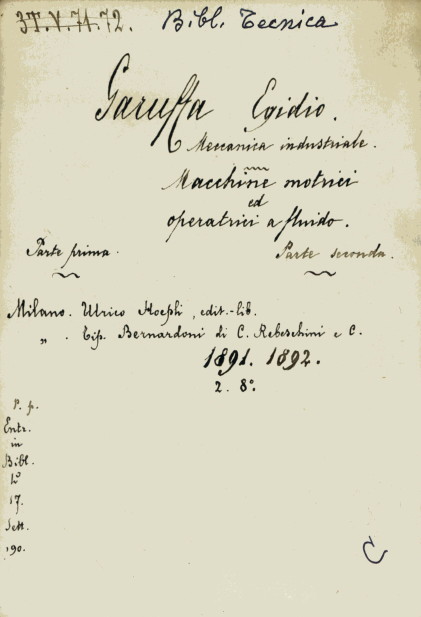 3T.V.71.72. Bibl. Tecnica
Garuffa Egidio.
Meccanica industriale.
Macchine motrici
ed
operatrici a fluido.
Parte prima. Parte seconda.
Milano. Ulrico Hoepli, edit.-lib.
„ . Tip. Bernardoni di C. Rebeschini e C.
1891. 1892.
2. 8°.
P. p.
Entr.
in
Bibl.
17.
Sett.
190.
C